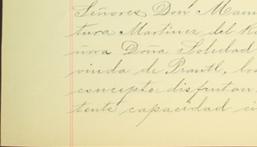 Señores Don Manu
tura Martinez del Rí
ñora Doña Soledad
viuda de Prautl, ha
concepto disfrutan
tente capacidad ci